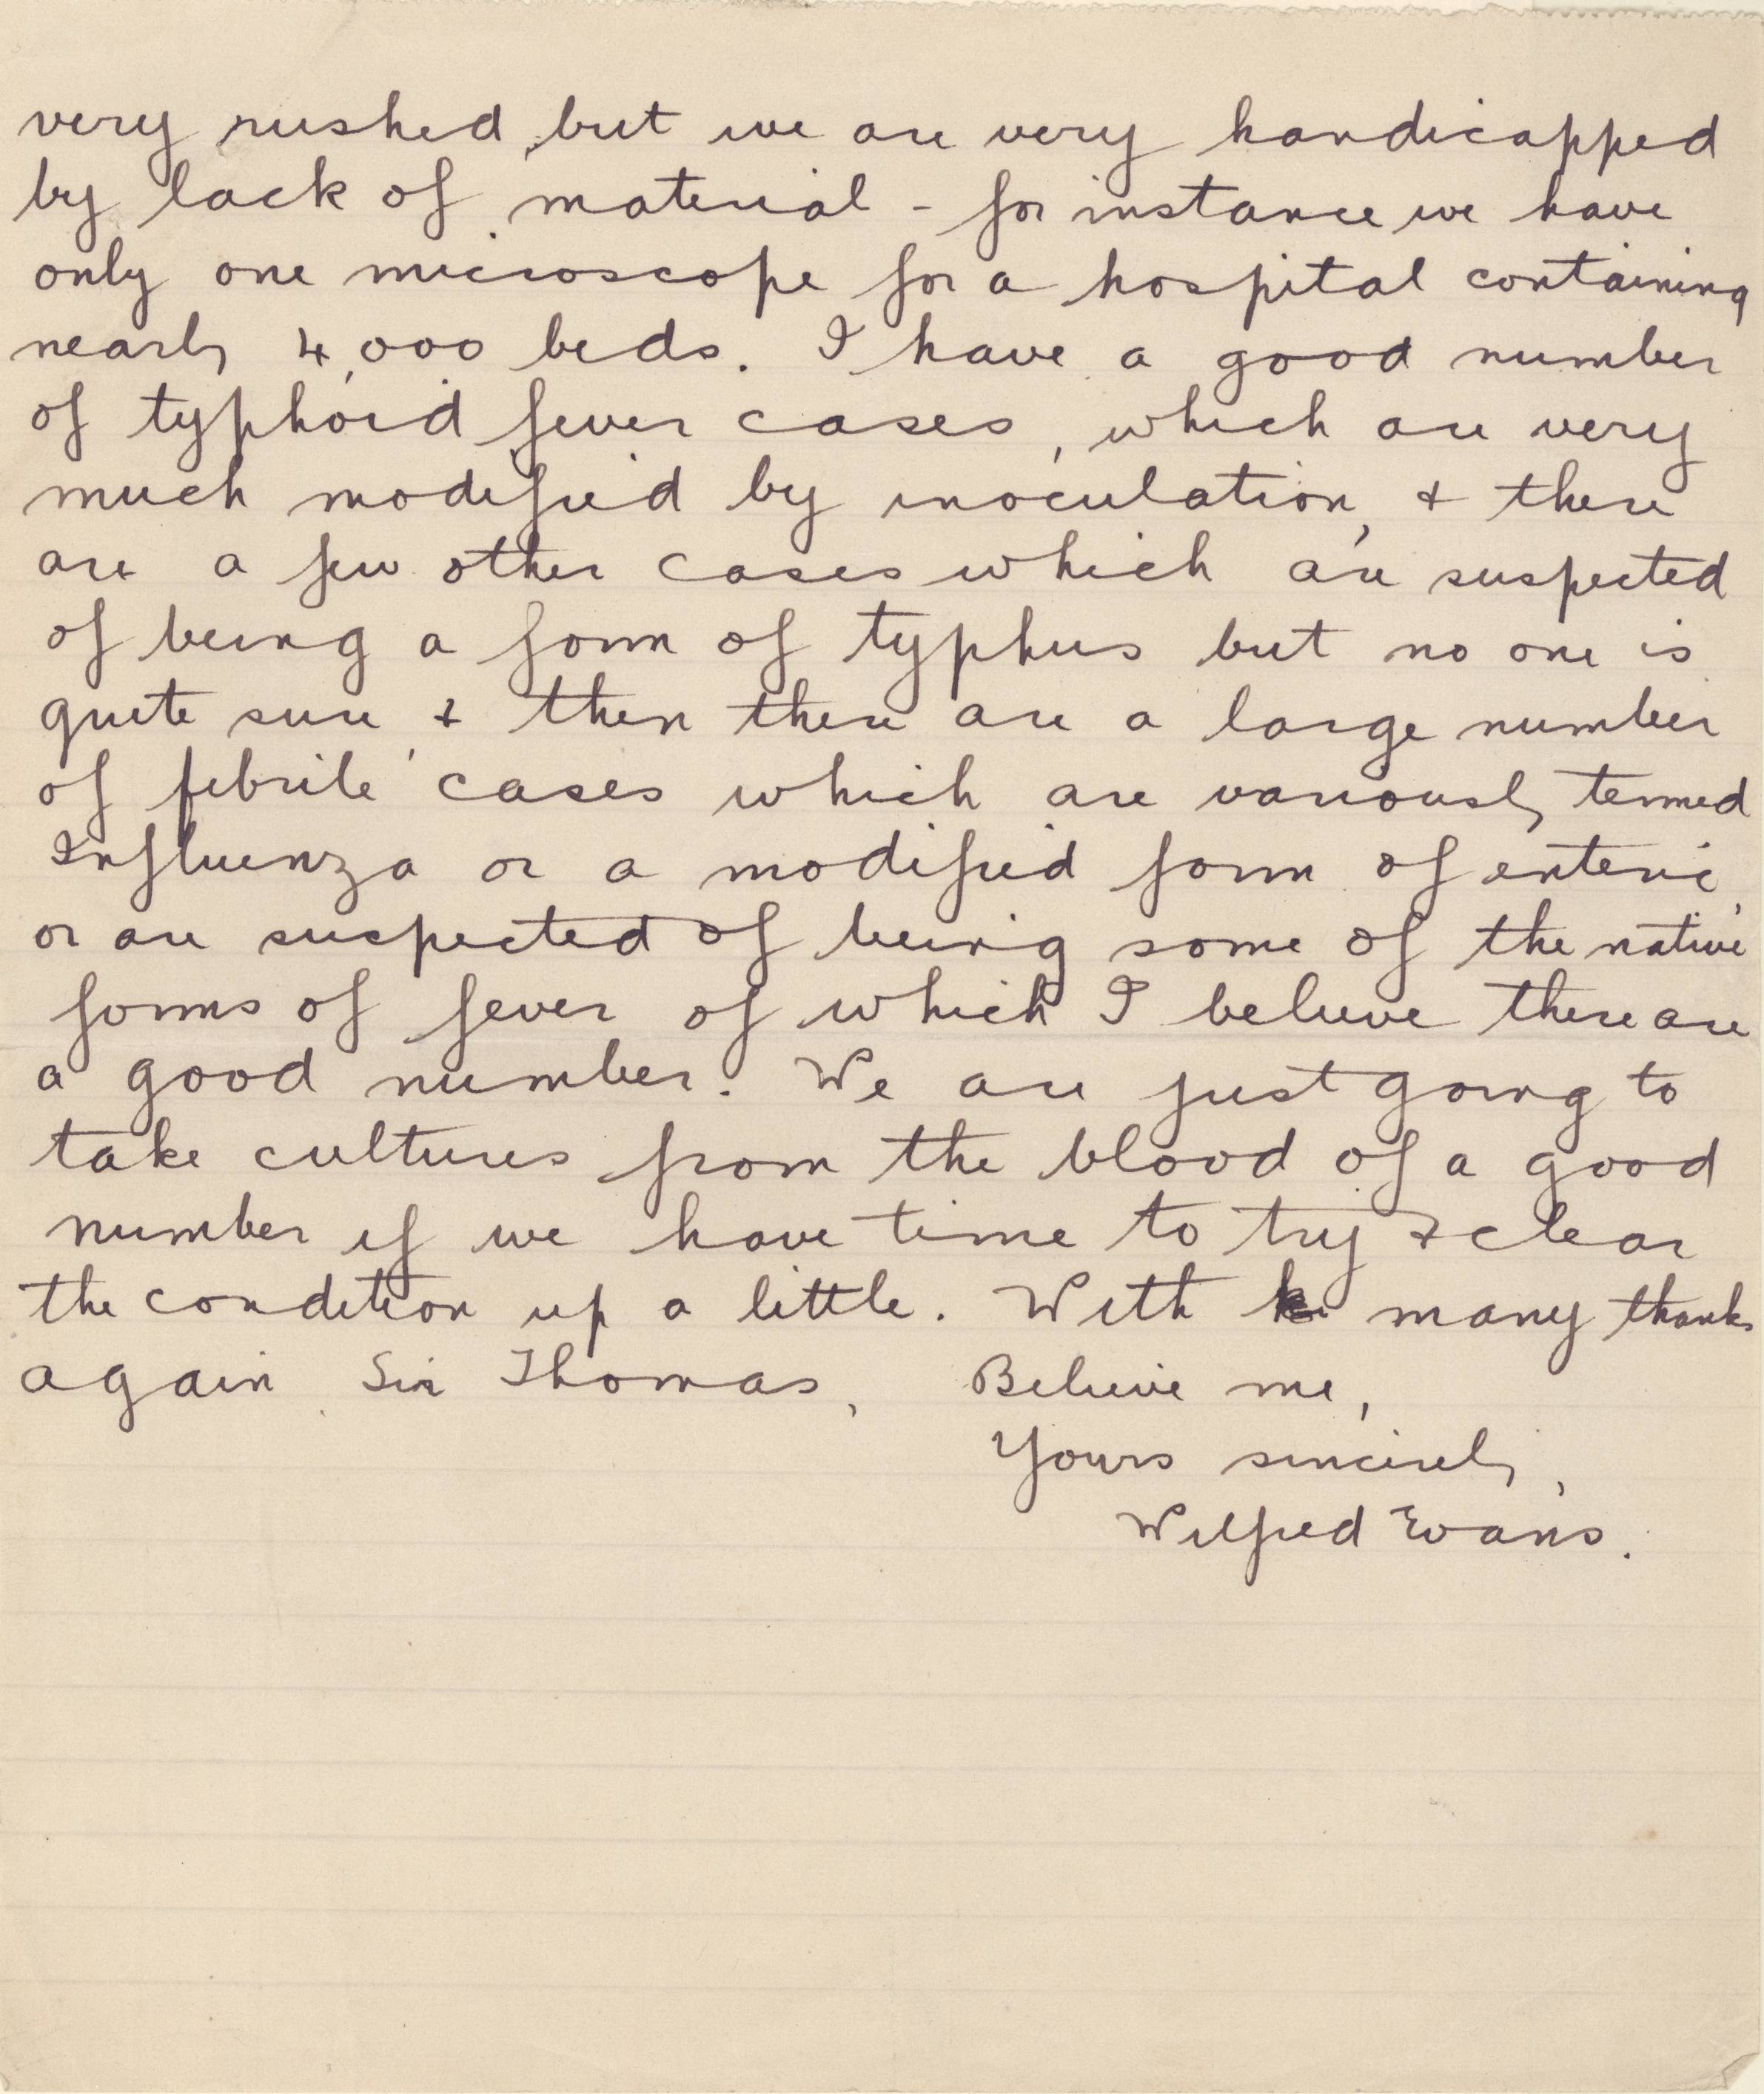 very rushed, but we are very handicapped
by lack of material - for instance we have
only one microscope for a hospital containing
nearly 4,000 beds. I have a good number
of typhoid fever cases, which are very
much modified by inoculation, & there
are a few other cases which are suspected
of being a form of typhus but no one is
quite sure, & then there are a large number
of febrile cases which are variously termed
Influenza or a modified form of enteric,
or are suspected of being some of the native
forms of fever of which I believe there are
a good number. We are just going to
take cultures from the blood of a good
number if we have time to try & clear
the condition up a little. With many thanks
again Sir Thomas, Believe me,
Yours sincerely,
Wilfred Evans.